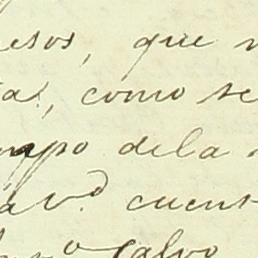 esos, que
como se
mpo dela
áv.d cuent
Calvo